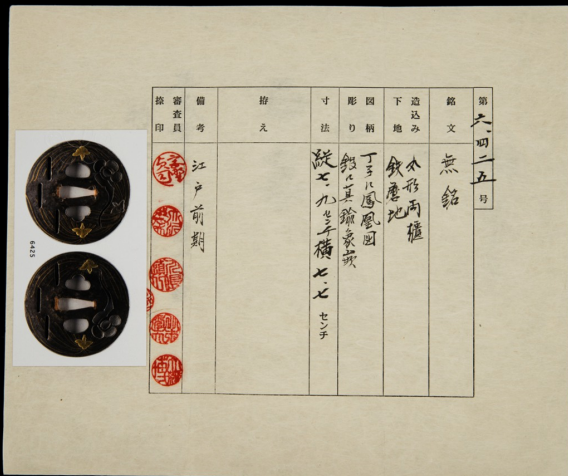 第六、四二五号
銘文
無銘
造込み
下地
丸形両櫃
鉄磨地
図柄
彫り
丁子に鳳凰図
鋤に真鍮象嵌
寸法
縦七・九センチ横七・七センチ
拵え
備考
江戸前期
審査員
捺印
6425